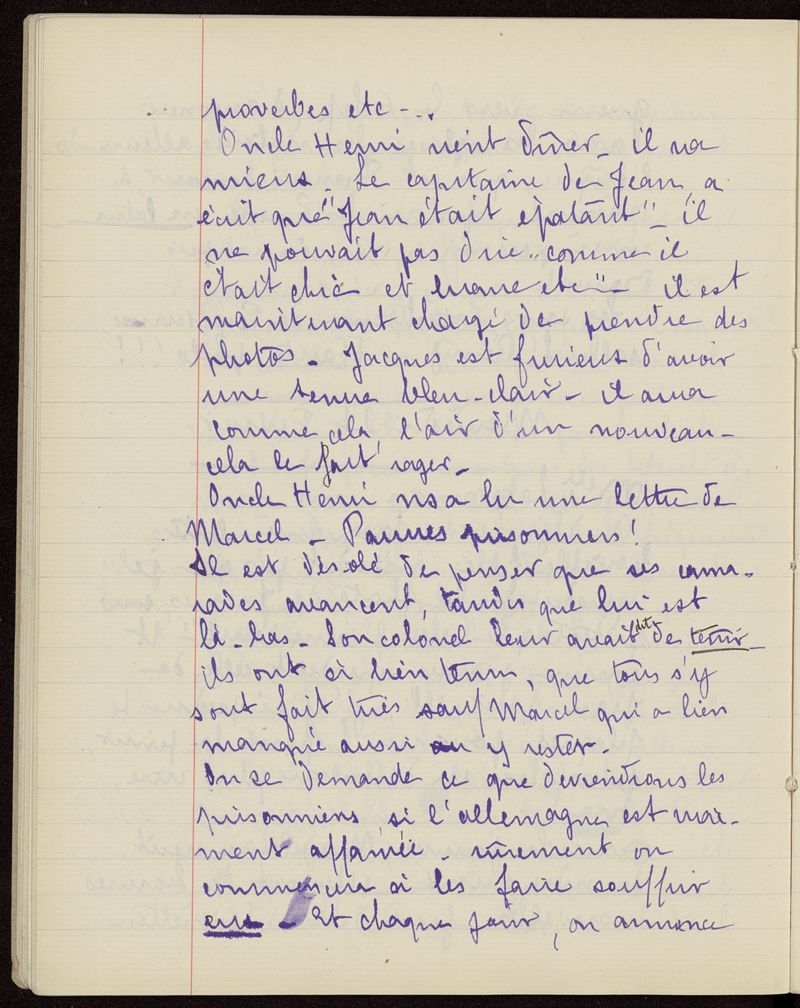 proverbes etc -..
Oncle Henri vient dîner - il va
mieux. Le capitaine de Jean a
écrit que "Jean était épatant" - il
ne pouvait pas dire "comme il
était chic et brave etc" - il est
maintenant chargé de prendre des
photos - Jacques est furieux d'avoir
une tenue bleu-clair - il aura
comme cela l'air d'un nouveau -
cela le fait rager -
Oncle Henri ns a lu une lettre de
Marcel - Pauvres prisonniers !
Il est désolé de penser que ses cama-
rades avancent, tandis que lui est
là-bas - Son colonel leur avait dit de tenir -
ils ont si bien tenu, que tous s'y
sont fait tués sauf Marcel qui a bien
manqué aussi y rester -
On se demande ce que deviendrons les
prisonniers si l'allemagne est vrai-
ment affamée - sûrement on
commencera à les faire souffrir
eux - Et chaque jour, on annonce